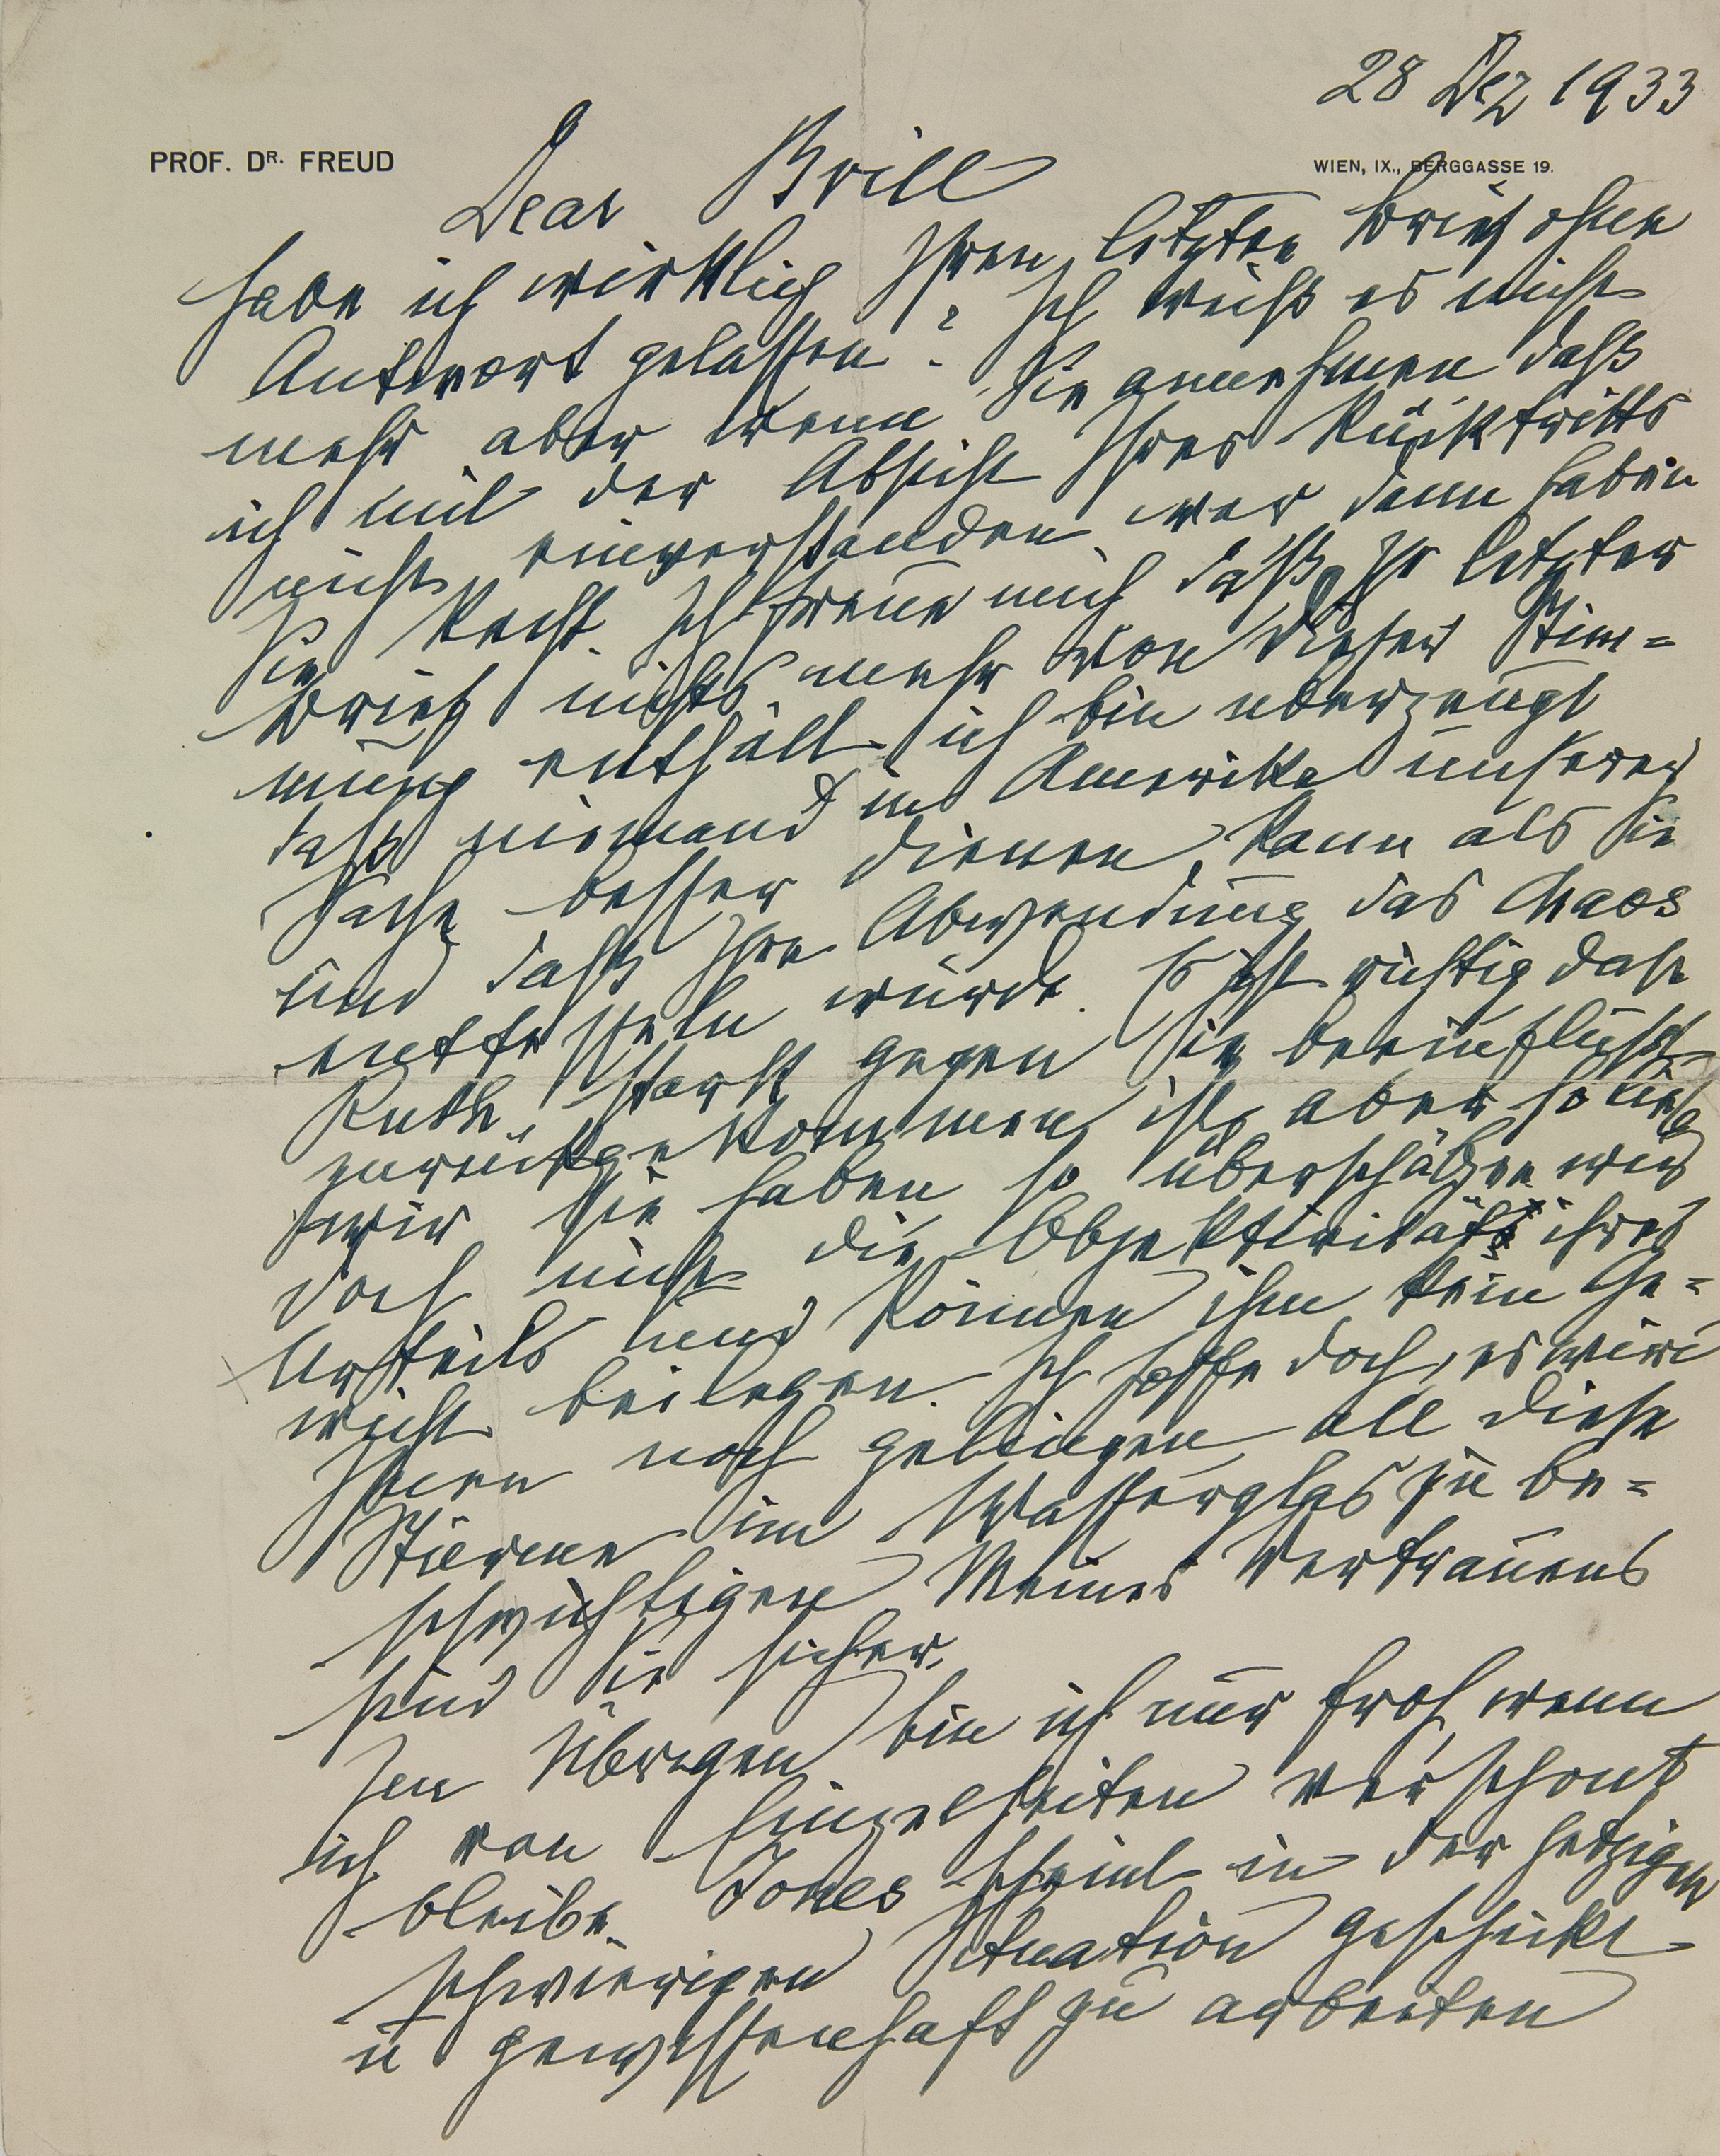 28 Dez 1933
PROF. DR. FREUD
WIEN, IX., BERGGASSE 19.
Dear Brill
Habe ich wirklich Ihren letzten Brief ohne
Antwort gelassen? Ich weiß es nicht
mehr aber wenn Sie annehmen daß
ich mit der Absicht Ihres Rücktritts
nicht einverstanden war dann haben
Sie Recht. Ich freue mich daß Ihr letzter
Brief nichts mehr von dieser Stim=
mung enthält. ich bin überzeugt
daß niemand in Amerika unserer
Sache besser dienen kann als Sie
und daß Ihre Abwendung das Chaos
entfesseln würde. Es ist richtig daß
Ruth stark gegen Sie beeinflußt
zurückgekommen ist, aber so lieb
wir sie haben so überschätzen wir
doch nicht die Objektivität ihres
Urteils und können ihm kein Ge=
wicht beilegen. Ich hoffe doch, es wird
Ihnen noch gelingen all diese
Stürme im Wasserglas zu be=
schwichtigen Meines Vertrauens
sind Sie sicher.
Im Übrigen bin ich nur froh, wenn
ich von Einzelheiten verschont
bleibe. Jones scheint in der jetzigen
schwierigen Situation geschickt
u gewissenhaft zu arbeiten